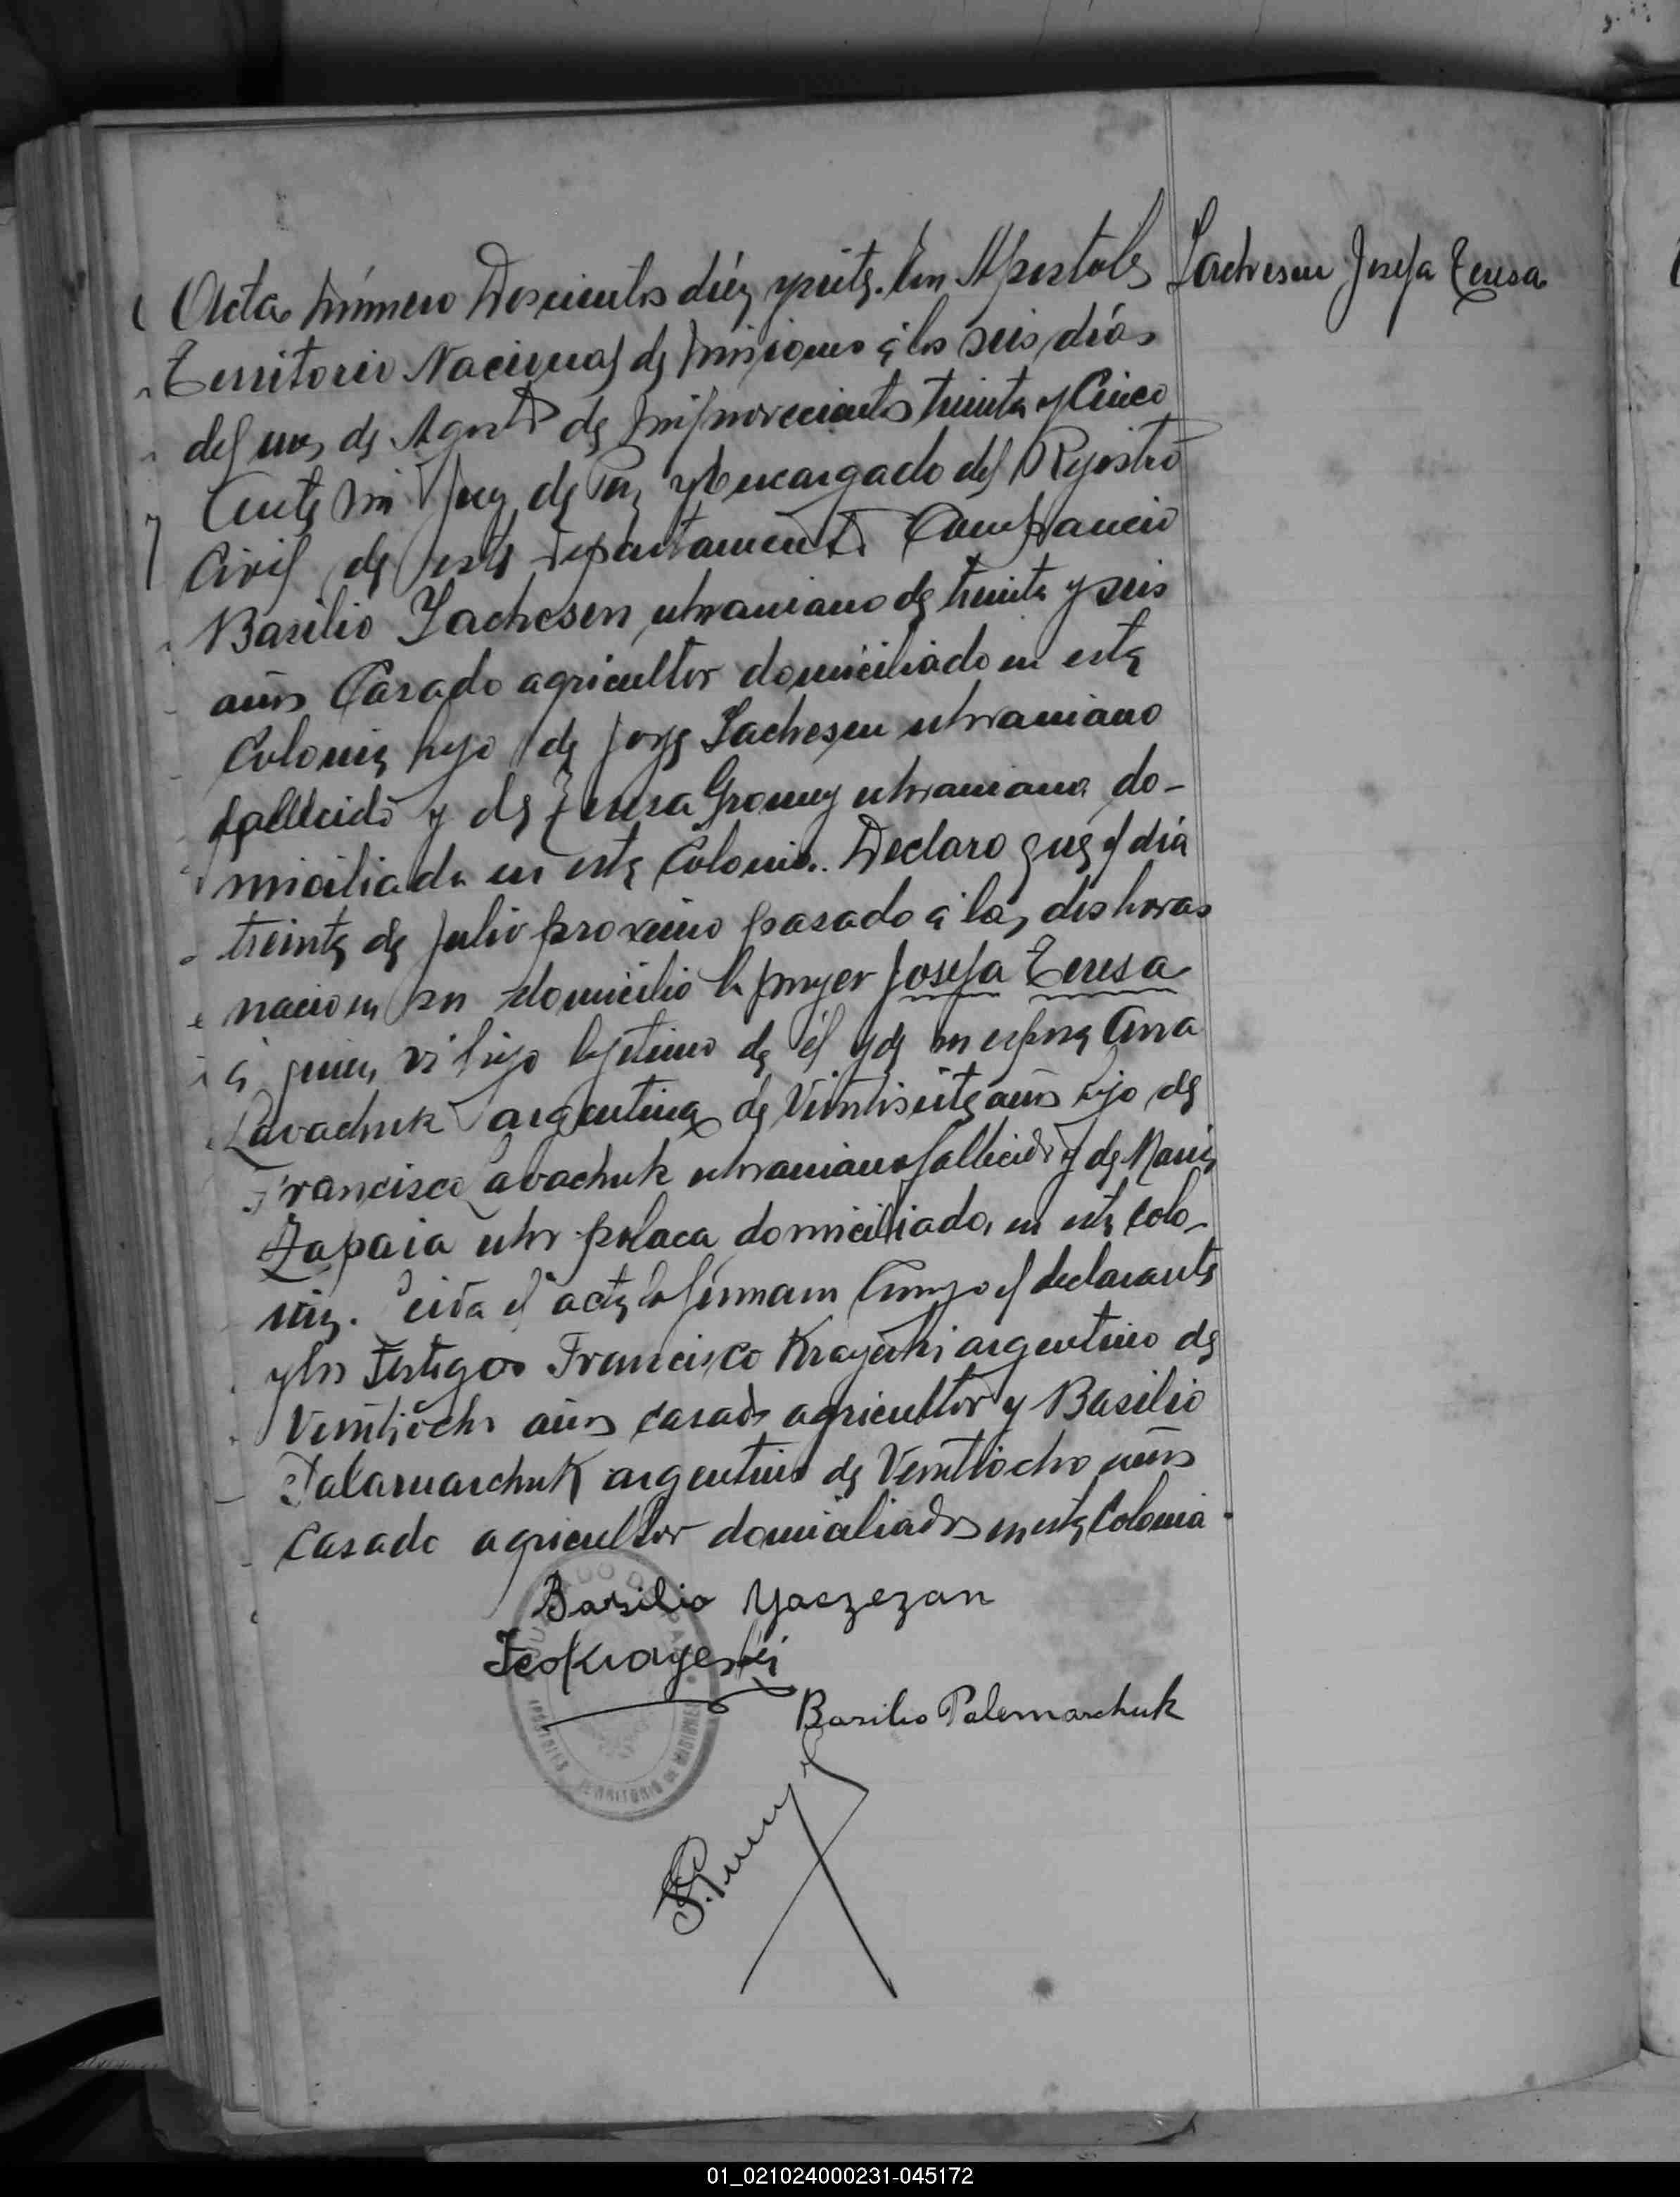 Acta número Doscientos diéz y siete. En Apostoles
Iachesen Josefa Teresa
Territorio Nacional de Misiones á los seis días
del mes de Agosto de mil novecientos treinta y Cinco
Ante mi Juez de Paz y Encargado del Rejistro
Civil de este departamento Comparecio
Basilio Iachesen, ukraniano de treinta y seis
años Casado agricultor domiciliado en esta
Colonia hijo de Jorge Iachesen ukraniano
fallecido y de Teresa ukraniana do-
miciliada en esta Colonia. Declaro que el día
treinta de Julio proximo pasado á las dos horas
nacio en su domicilio la mujer Josefa Teresa
á quien vi hijo lejitimo de él y de su esposa Ana
Lavachuk argentina de Veintisiete años hijo de
Francisco Lavachuk ukraniano fallecido y de Maria
Zapaia ukr polaca domiciliada en esta Colo-
nia. Leida el acta la firmam Conmigo el declarante
y los Testigos Francisco argentino de
Veintiocho años casado agricultor y Basilio
Palamarchuk argentino de Veintiocho años
Casado agricultor domiciliados en esta Colonia
Basilio Yaczezan
Fco
Basilio Palemarchuk
JUZGADO DE PAZ
APOSTOLES TERRITORIO DE MISIONES
01_021024000231-045172